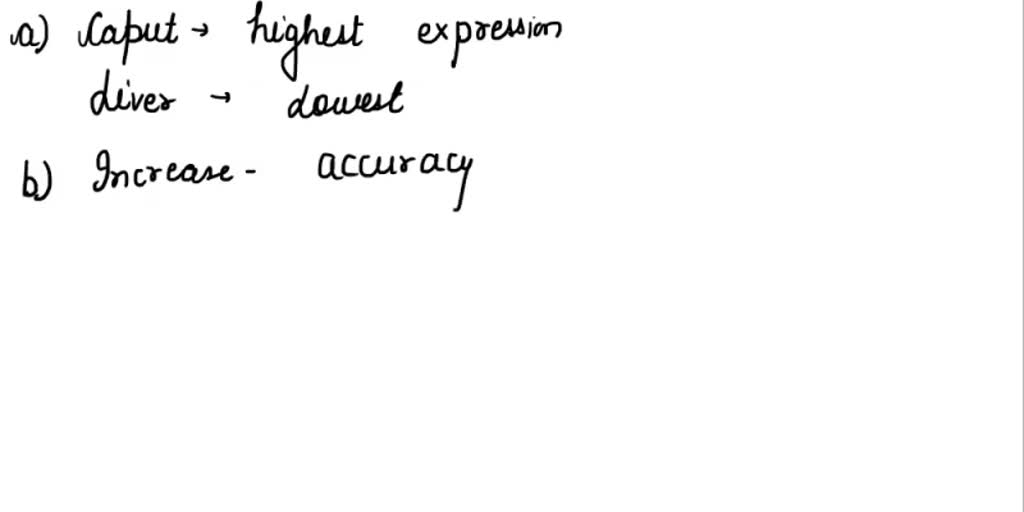 a) Caput → highest expression
liver → lowest
b) Increase - accuracy